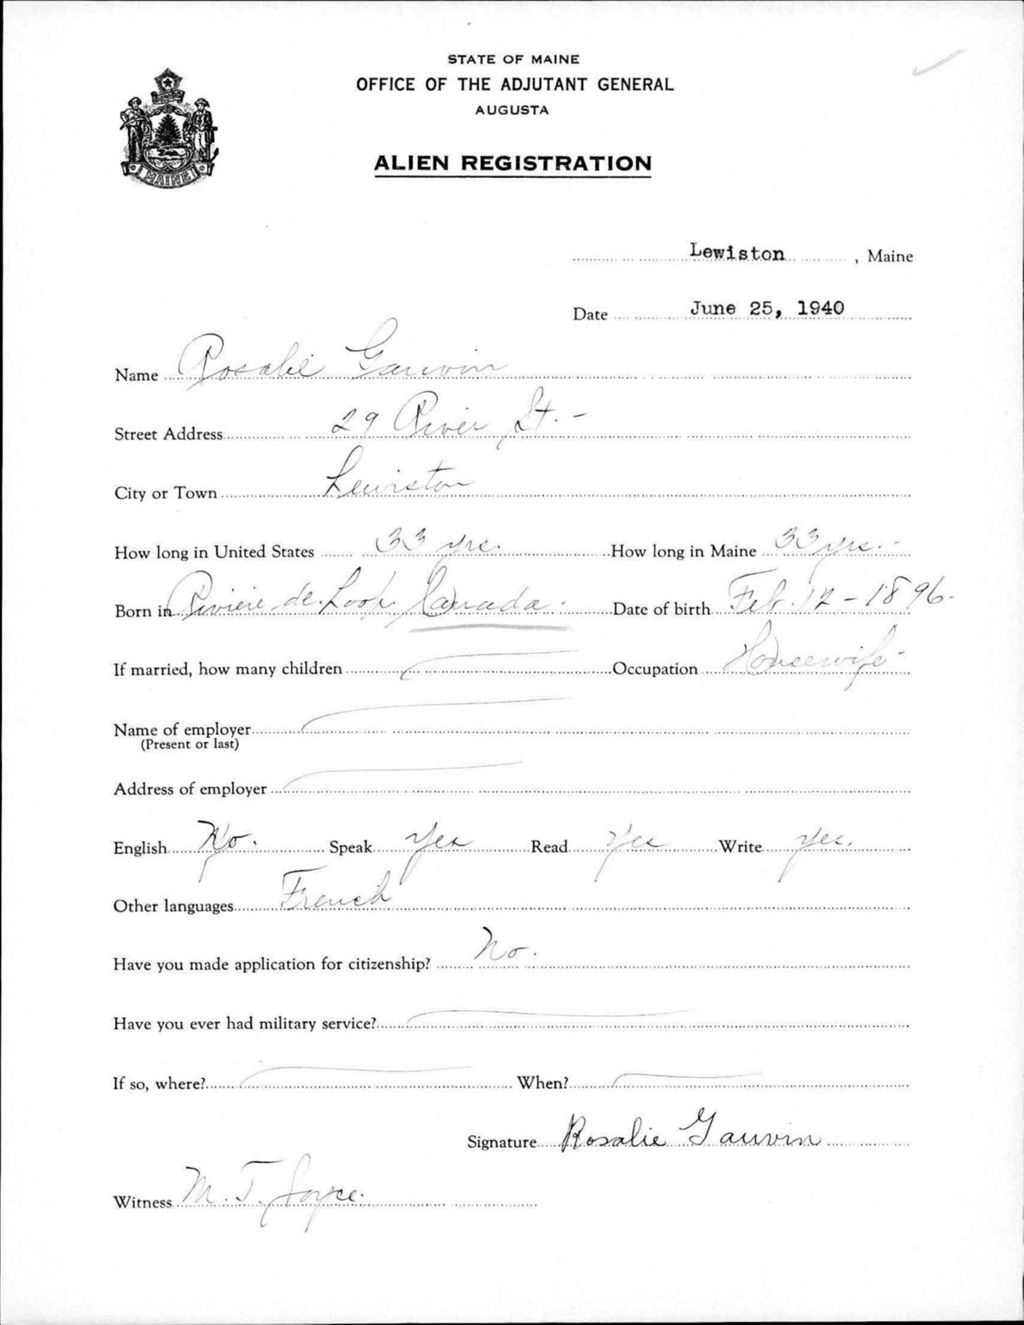 STATE OF MAINE
OFFICE OF THE ADJUTANT GENERAL
AUGUSTA
ALIEN REGISTRATION
MAINE
Lewiston, Maine
Date June 25, 1940
Name Rosalie Gauvin
Street Address 29 River St. -
City or Town Lewiston
How long in United States 33 yrs. How long in Maine 33 yrs. -
Born in Riviere-de-Loop Canada. Date of birth Feb. 12-1896-
If married, how many children Occupation Housewife-
Name of employer
(Present or last)
Address of employer
English No. Speak Yes Read Yes Write Yes.
Other languages French
Have you made application for citizenship? No.
Have you ever had military service?
If so, where? When?
Signature Rosalie Gauvin
Witness M. T. Joyce.